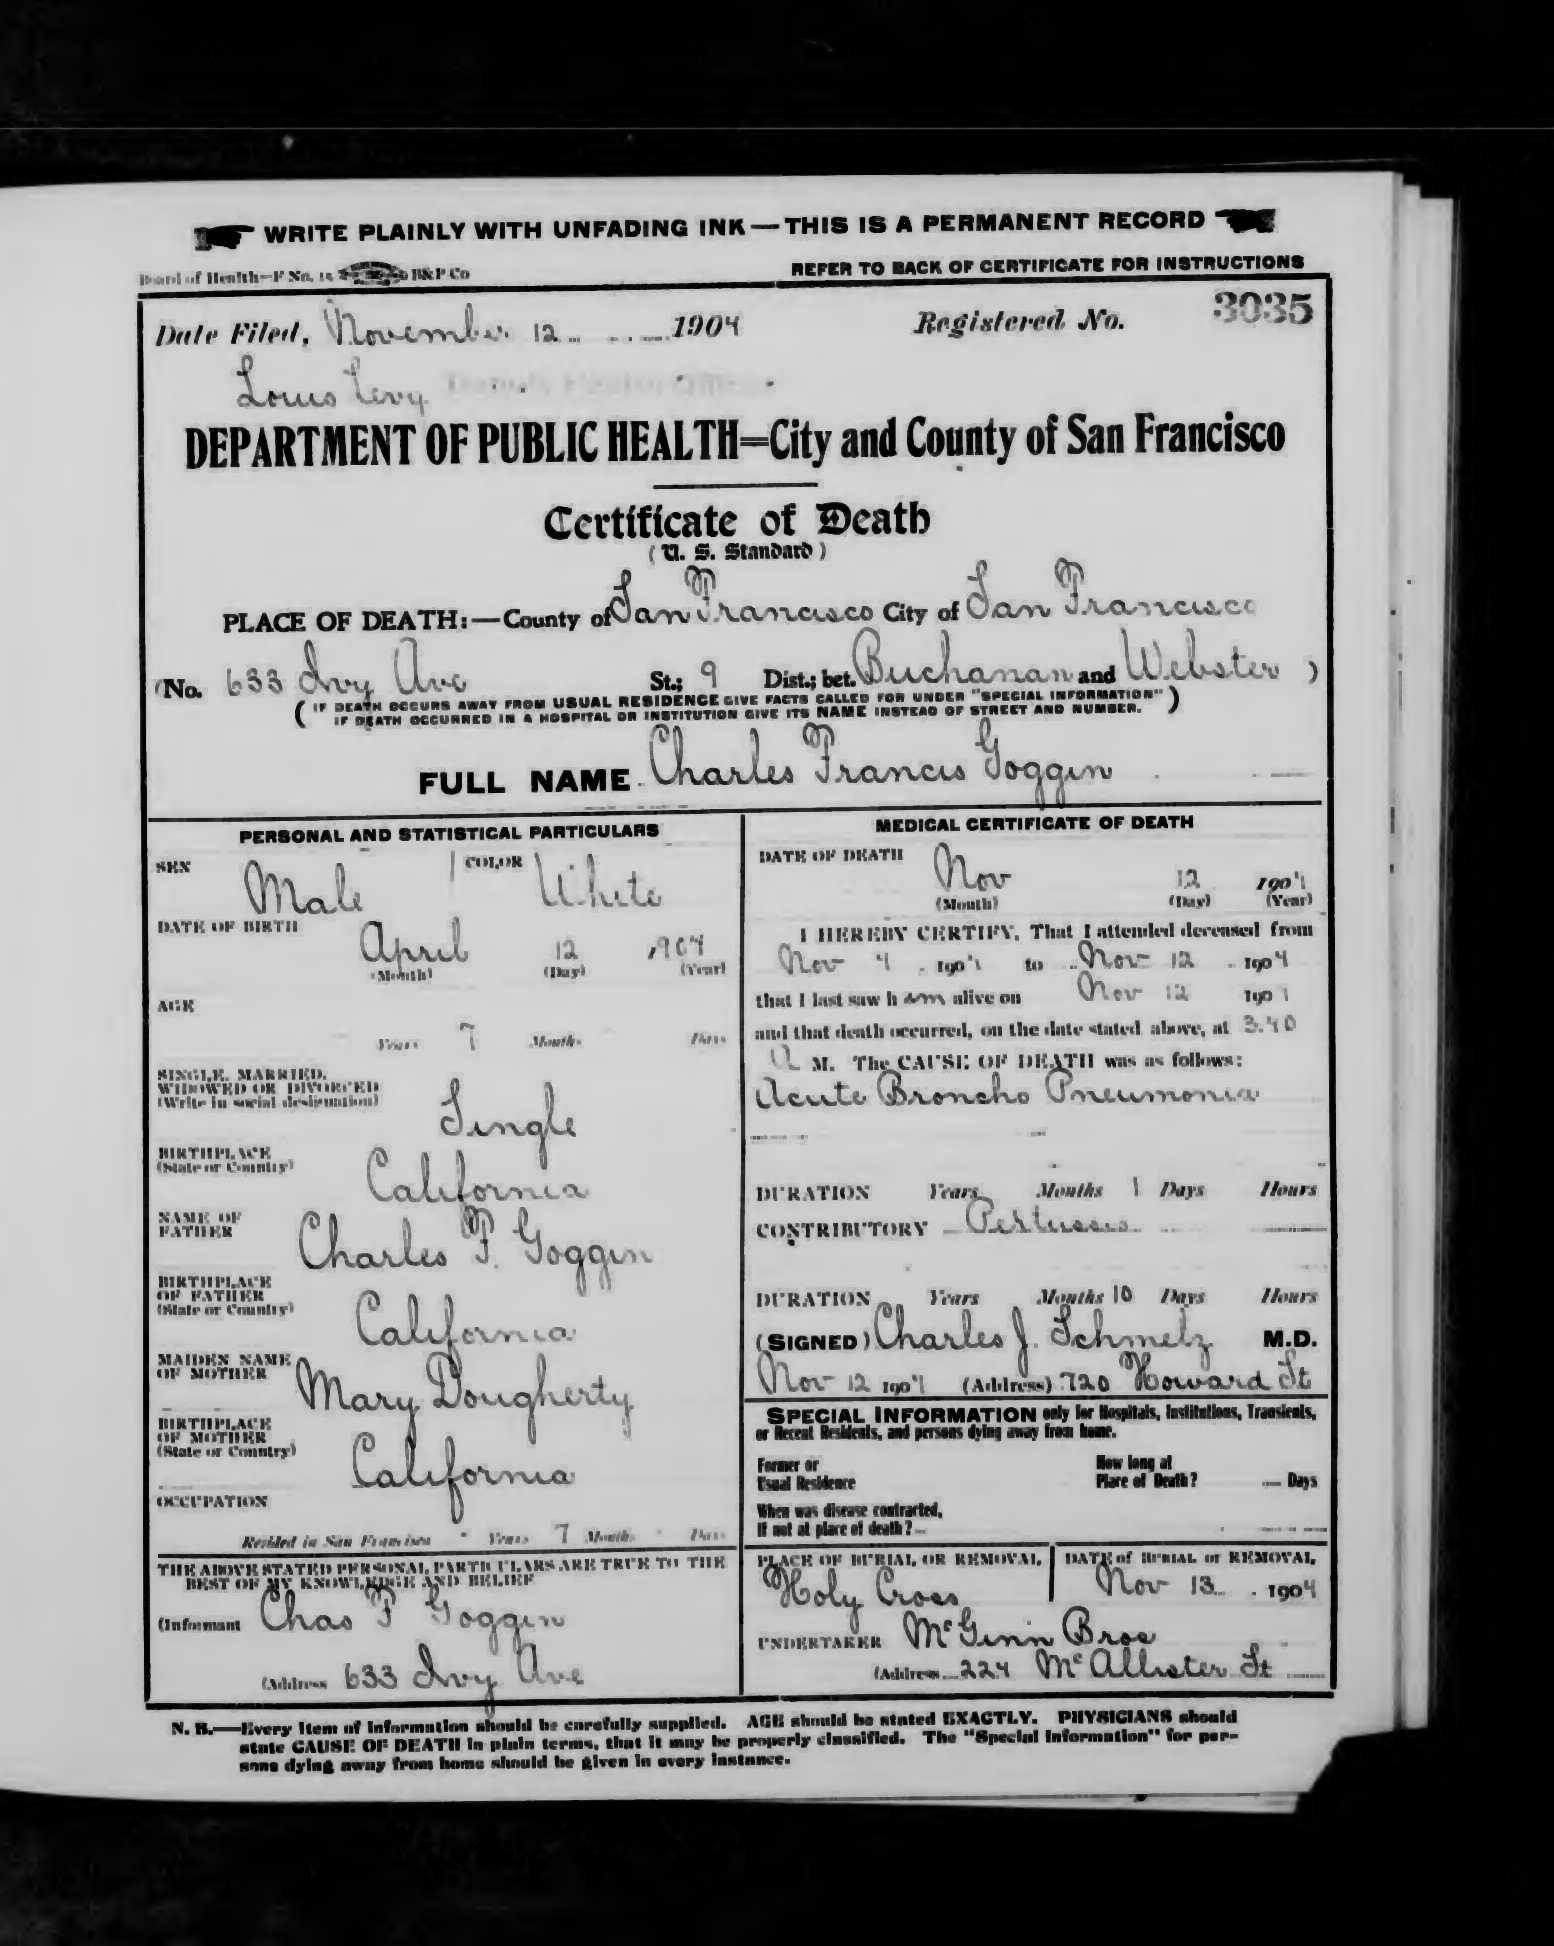 WRITE PLAINLY WITH UNFADING INK — THIS IS A PERMANENT RECORD
Board of Health—F No. 15 B&P Co
REFER TO BACK OF CERTIFICATE FOR INSTRUCTIONS
Date Filed, November 12 1904 Registered No. 3035
Louis Levy
DEPARTMENT OF PUBLIC HEALTH=City and County of San Francisco
Certificate of Death
(U. S. Standard)
PLACE OF DEATH:—County of San Francisco City of San Francisco
(No. 633 Ivy Ave St.; 9 Dist.; bet. Buchanan and Webster )
( IF DEATH OCCURS AWAY FROM USUAL RESIDENCE GIVE FACTS CALLED FOR UNDER "SPECIAL INFORMATION" )
IF DEATH OCCURRED IN A HOSPITAL OR INSTITUTION GIVE ITS NAME INSTEAD OF STREET AND NUMBER.
FULL NAME Charles Francis Goggin
PERSONAL AND STATISTICAL PARTICULARS
SEX Male COLOR White
DATE OF BIRTH
April 12 1904
(Month) (Day) (Year)
AGE
Years 7 Months Days
SINGLE, MARRIED,
WIDOWED OR DIVORCED
(Write in social designation)
Single
BIRTHPLACE
(State or Country)
California
NAME OF
FATHER
Charles F. Goggin
BIRTHPLACE
OF FATHER
(State or Country)
California
MAIDEN NAME
OF MOTHER
Mary Dougherty
BIRTHPLACE
OF MOTHER
(State or Country)
California
OCCUPATION
Resided in San Francisco Years 7 Months Days
THE ABOVE STATED PERSONAL PARTICULARS ARE TRUE TO THE
BEST OF MY KNOWLEDGE AND BELIEF
(Informant Chas F Goggin
(Address 633 Ivy Ave
MEDICAL CERTIFICATE OF DEATH
DATE OF DEATH
Nov 12 1904
(Month) (Day) (Year)
I HEREBY CERTIFY, That I attended deceased from
Nov 4 1904 to Nov 12 1904
that I last saw h im alive on Nov 12 1904
and that death occurred, on the date stated above, at 3.40
A M. The CAUSE OF DEATH was as follows:
Acute Broncho Pneumonia
DURATION Years Months 1 Days Hours
CONTRIBUTORY Pertussis
DURATION Years Months 10 Days Hours
(SIGNED) Charles J. Schmelz M.D.
Nov 12 1904 (Address) 720 Howard St
SPECIAL INFORMATION only for Hospitals, Institutions, Transients,
or Recent Residents, and persons dying away from home.
Former or
Usual Residence
How long at
Place of Death? Days
When was disease contracted,
If not at place of death?
PLACE OF BURIAL OR REMOVAL
Holy Cross
DATE of BURIAL or REMOVAL
Nov 13 1904
UNDERTAKER McGinn Bros
(Address 224 McAllister St
N. B.—Every item of information should be carefully supplied. AGE should be stated EXACTLY. PHYSICIANS should
state CAUSE OF DEATH in plain terms, that it may be properly classified. The "Special Information" for per-
sons dying away from home should be given in every instance.